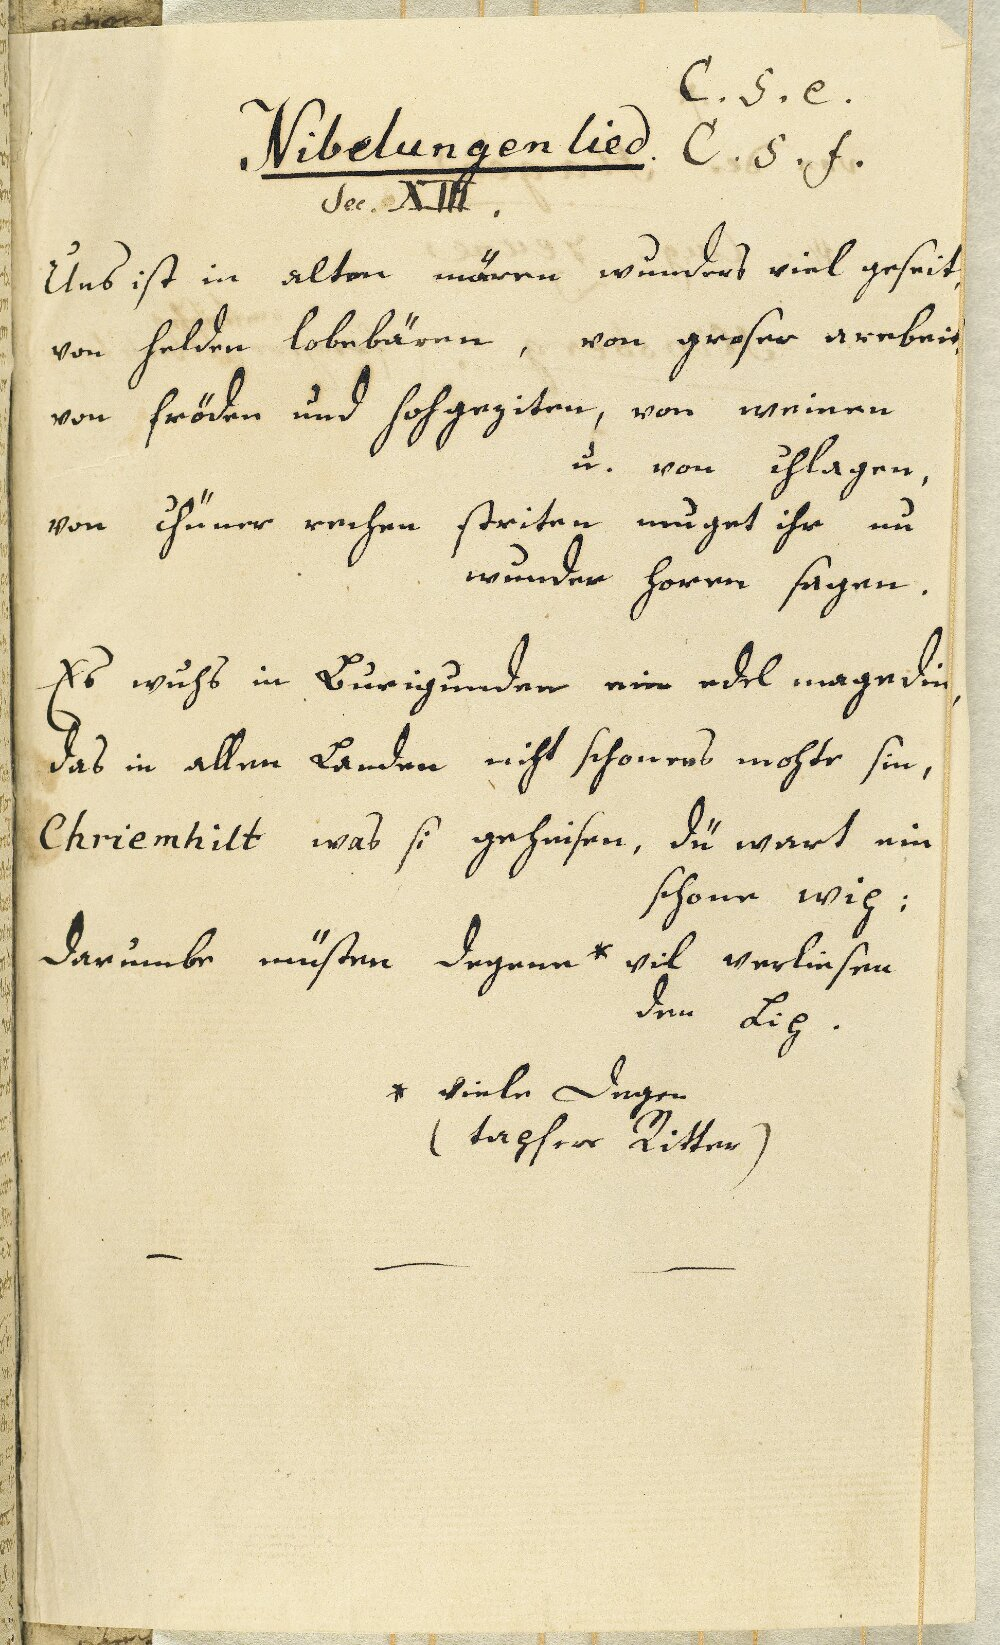 C. S. e.
Nibelungenlied. C. S. f.
Sec. XIII.
Uns ist in alten mären wunders viel geseit,
von helden lobebären, von groser arebeit,
von fröden und hohgeziten, von weinen
u. von chlagen,
von chüner rechen striten muget ihr nu
wunder horen sagen.
Es wuhs in Burigunden ein edel magedin,
das in allen Landen niht schoners mohte sin,
Chriemhilt was si geheisen, dü wart ein
schone wip;
darumbe müsten degene * vil verliesen
den Lip.
* viele Degen
(tapfere Ritter)